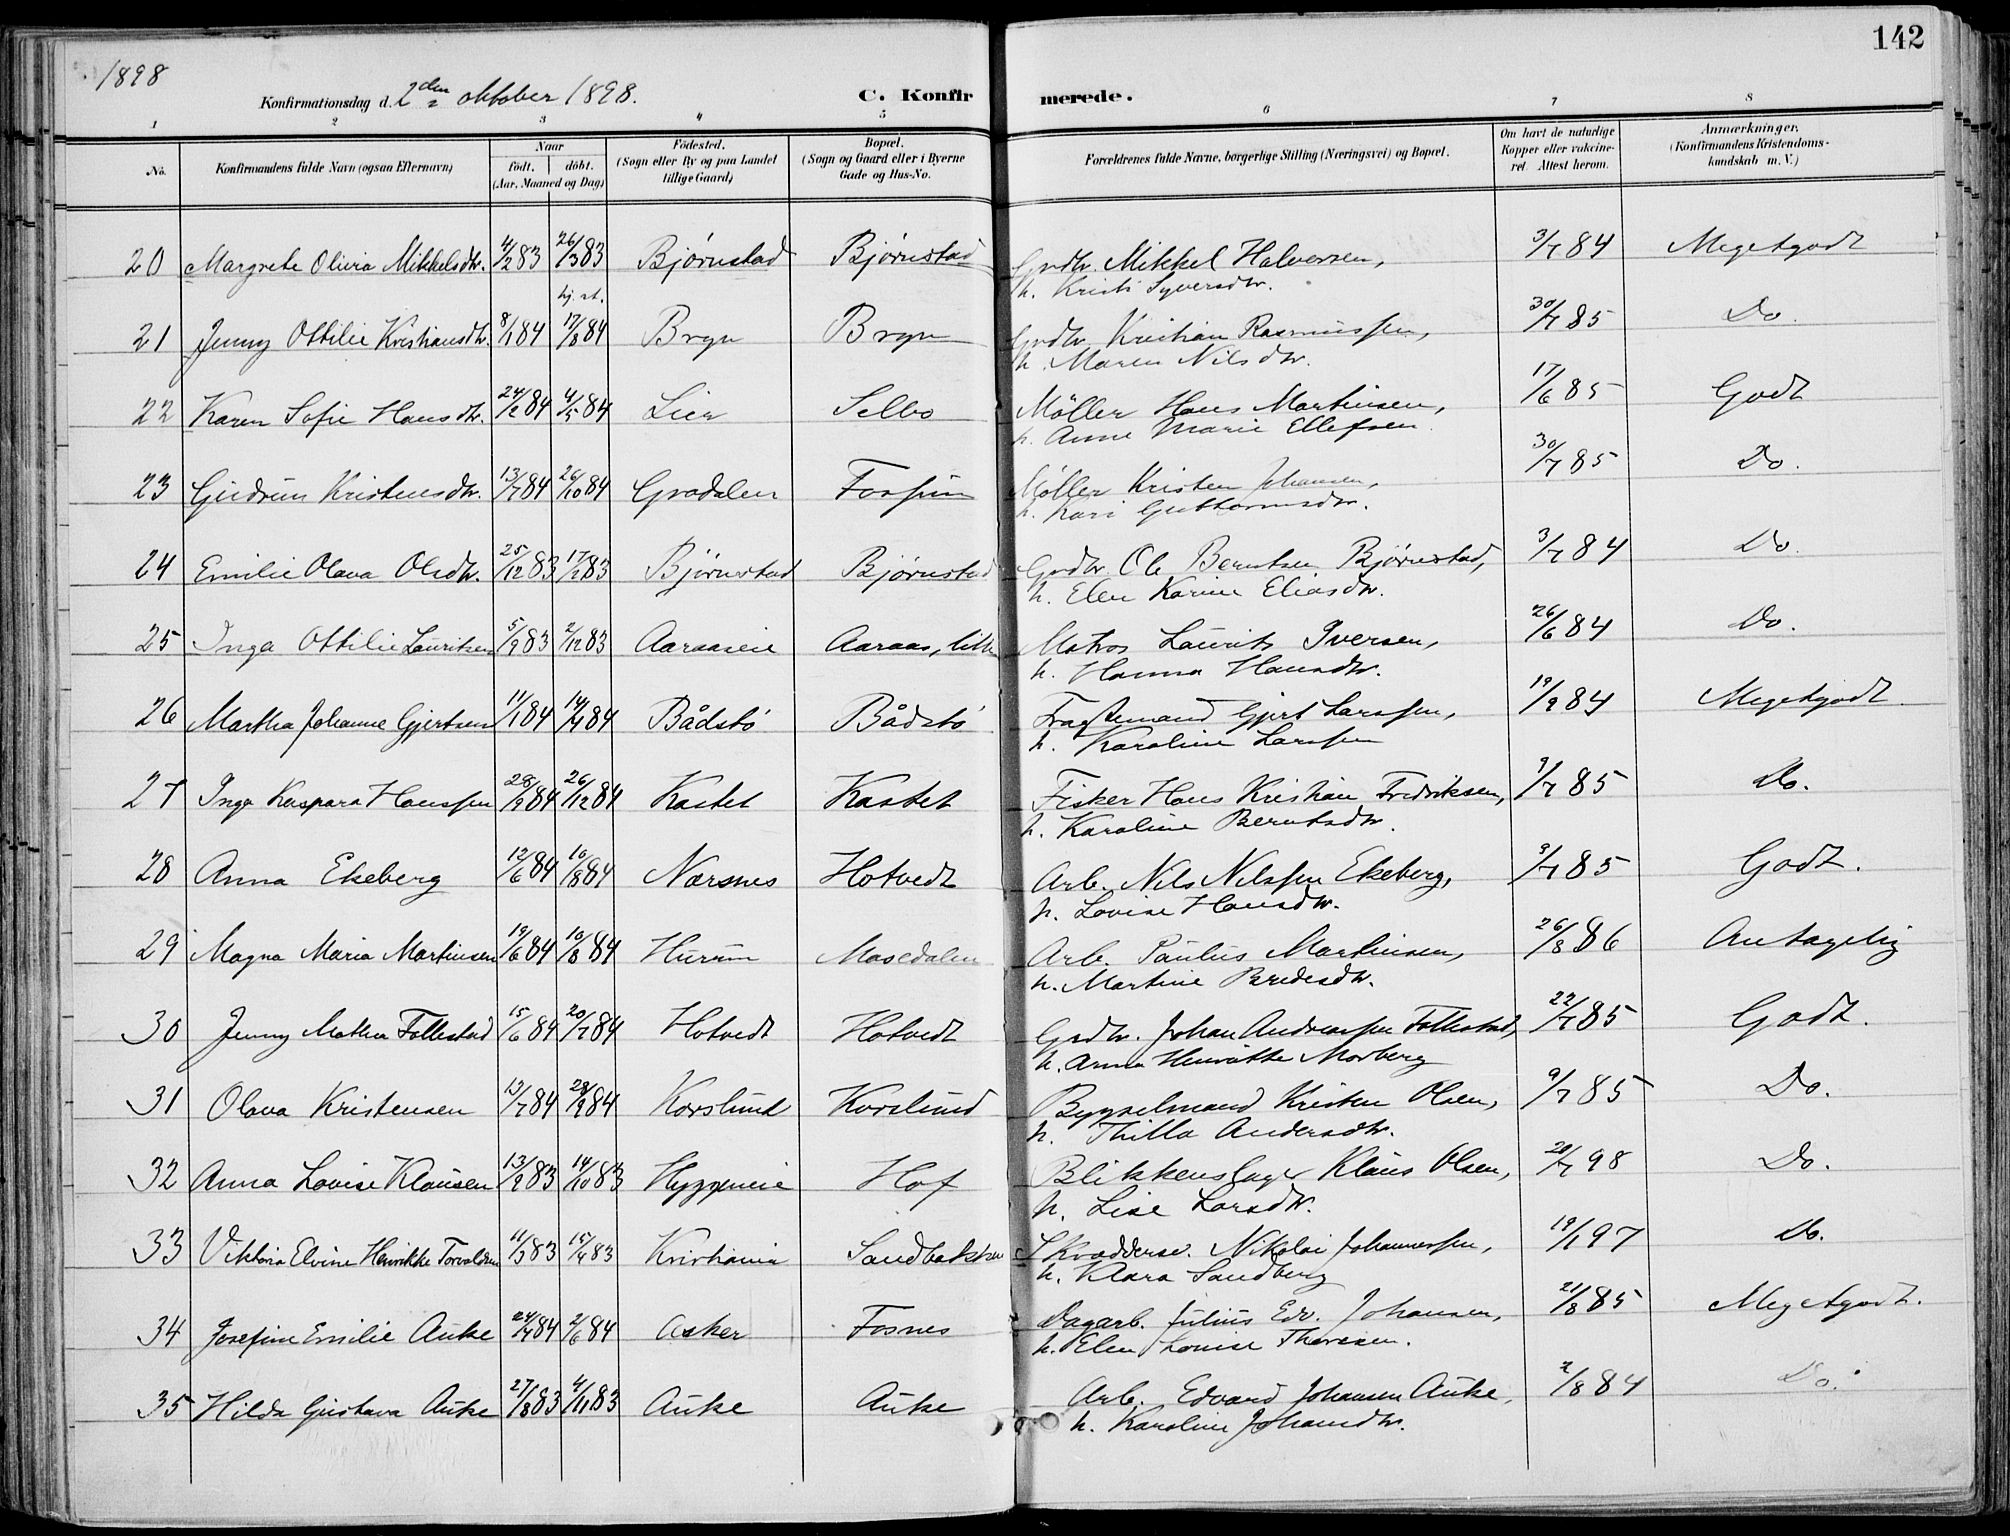 142
1898
Konfirmationsdag d. 2den oktober 1898. C. Konfirmerede.
1 2 3 4 5 6 7 8
No. Konfirmandens fulde Navn (ogsaa Efternavn) Naar født. døbt. (Aar, Maaned og Dag) Fødested. (Sogn eller By og paa Landet tillige Gaard) Bopæl. (Sogn og Gaard eller i Byerne Gade og Hus-No. Forældrenes fulde Navne, borgerlige Stilling (Næringsvei) og Bopæl. Om havt de naturlige Kopper eller vakcineret. Attest herom. Anmærkninger. (Konfirmandens Kristendomskundskab m. V.)
20 Margrete Olivia Mikkelsdtr. 4/2 83 26/3 83 Bjørnstad Bjørnstad Grdbr. Mikkel Halversen, 3/7 84 Megetgodt
h. Kristi Syversdtr.
hj. st.
21 Jenny Ottilie Kristiansdtr. 8/1 84 17/8 84 Bryn Bryn Grdbr. Kristian Rasmussen, 30/7 85 Do.
h. Maren Nilsdtr.
22 Karen Sofie Hansdtr. 24/2 84 4/5 84 Lier Selbo Møller Hans Martinsen, 17/6 85 Godt
h. Anne Marie Ellefsen.
23 Gudrun Kristensdtr. 13/7 84 26/10 84 Grødalen Fossum Møller Kristen Johansen, 30/7 85 Do.
h. Kari Guttormsdtr.
24 Emilie Olava Olsdtr. 25/12 83 17/2 83 Bjørnstad Bjørnstad Grdbr. Ole Berntsen Bjørnstad, 3/7 84 Do.
h. Elen Karine Eliasdtr.
25 Inga Ottilie Lauritsen 5/9 83 2/12 83 Aaraaseie Aaraas, lille Matros Laurits Iversen, 26/6 84 Do.
h. Hanna Hansdtr.
26 Martha Johanne Gjertsen 11/1 84 14/4 84 Bådstø Bådstø Fragtemand Gjert Larssen, 19/9 84 Megetgodt.
h. Karoline Larssen
27 Inga Kaspara Hanssen 28/9 84 26/12 84 Kastet Kastet Fisker Hans Kristian Fredriksen, 9/7 85 Do.
h. Karoline Berntsdtr.
28 Anna Ekeberg 12/6 84 10/8 84 Nærsnes Hotvedt Arb. Nils Nilssen Ekeberg, 9/7 85 Godt.
h. Lovise Hansdtr.
29 Magna Maria Martinsen 19/6 84 10/8 84 Hurum Masedalen Arb. Paulus Martinsen, 26/8 86 Antagelig
h. Martine Bredesdtr.
30 Jenny Mathea Follestad 15/6 84 20/7 84 Hotvedt Hotvedt Grdbr. Johan Andreassen Follestad, 22/7 85 Godt.
h. Anna Henriette Morberg
31 Olava Kristensen 13/7 84 28/9 84 Korslund Korslund Bygselmand Kristen Olsen, 9/7 85 Do.
h. Thilla Andersdtr.
32 Anna Lovise Klausen 13/9 83 14/10 83 Hyggeneie Hof Blikkenslager Klaus Olsen, 20/7 98 Do.
h. Lise Larsdtr.
33 Viktoria Elvine Henrikke Torvaldsen 11/3 83 15/4 83 Kristiania Sandbakken Skrædders. Nikolai Johannessen, 19/1 97 Do.
h. Klara Sandberg
34 Josefine Emilie Auke 24/4 84 2/6 84 Asker Fosnes Dagarb. Julius Edv. Johansen, 21/8 85 Megetgodt.
h. Elen Lovise Thoresen.
35 Hilda Gustava Auke 27/8 83 4/11 83 Auke Auke Arb. Edvard Johansen Auke, 2/8 84 Do.
h. Karoline Johansdtr.